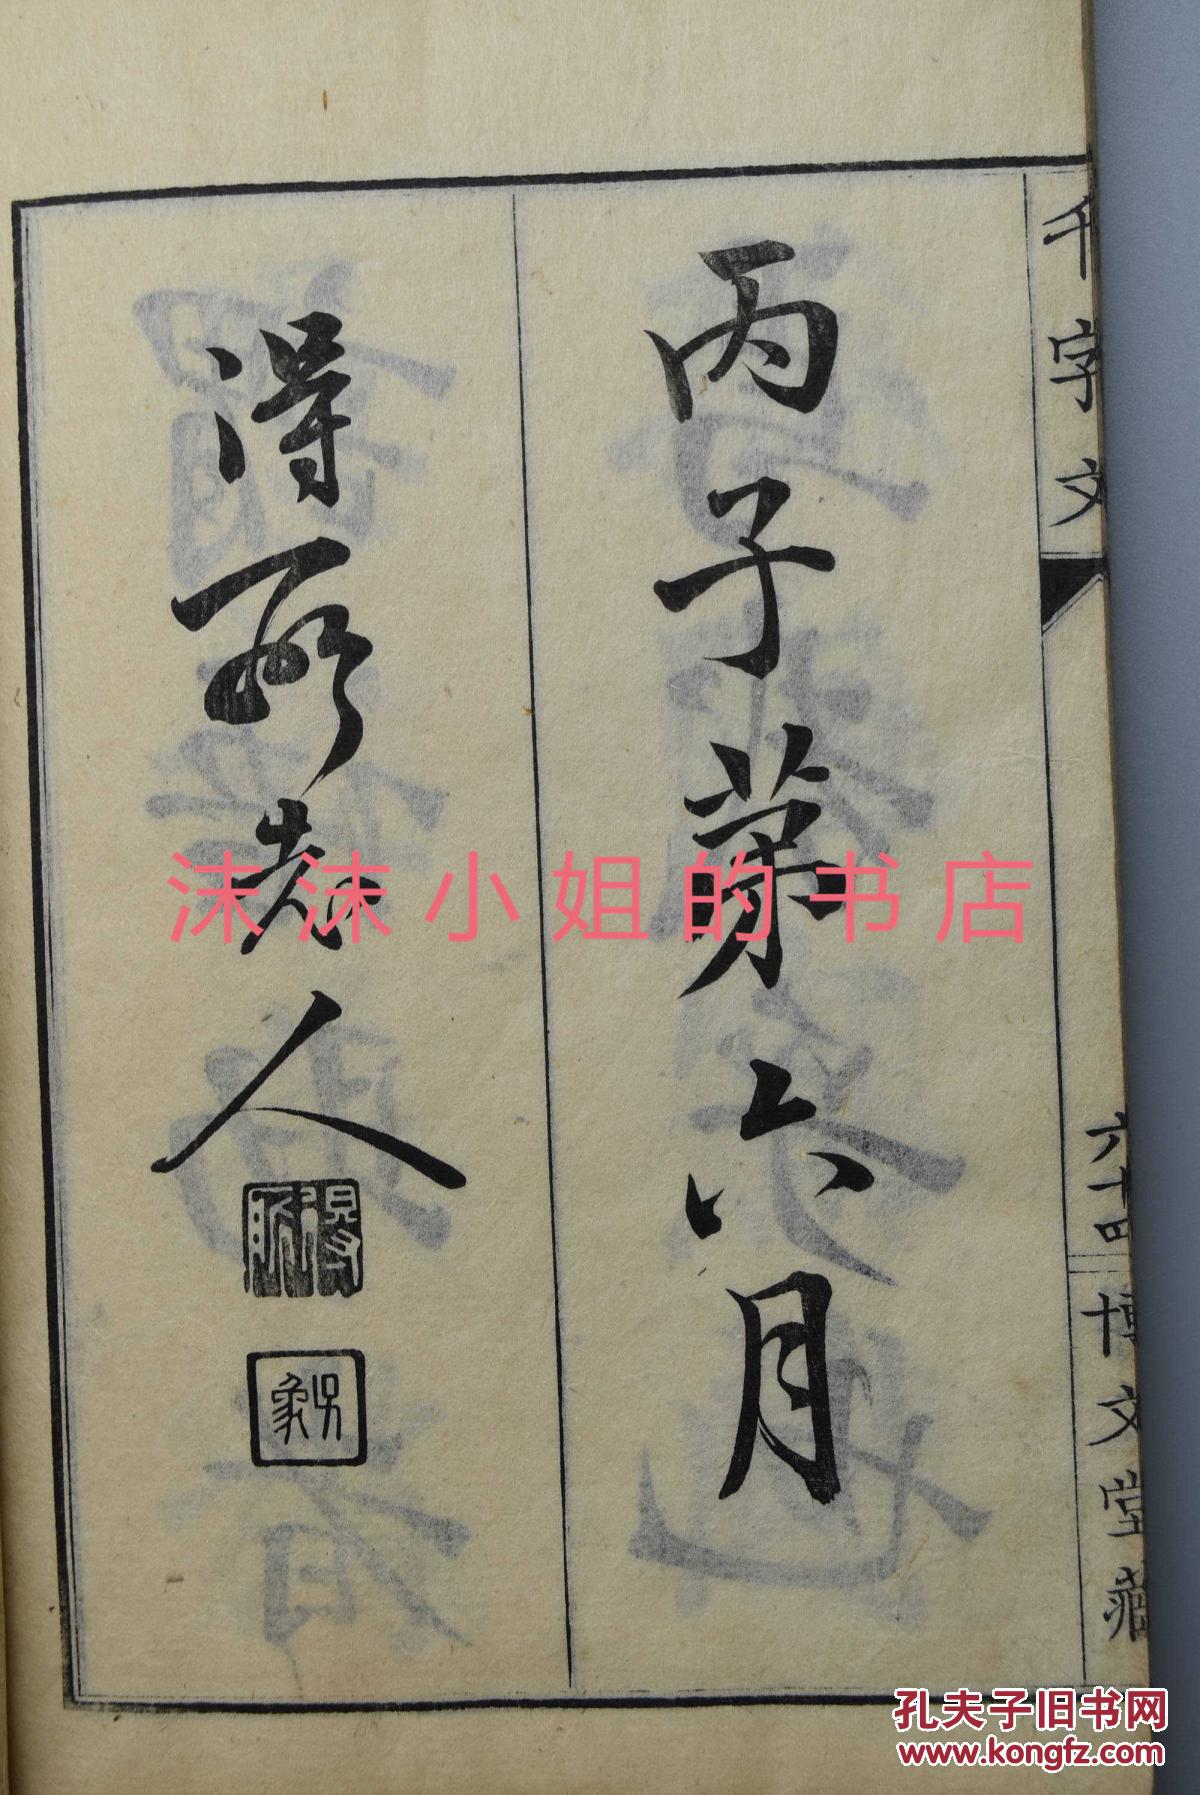 千字文
六十四
博文堂藏
丙子第六月
得所老人
沫沫小姐的书店
孔夫子旧书网
www.kongfz.com